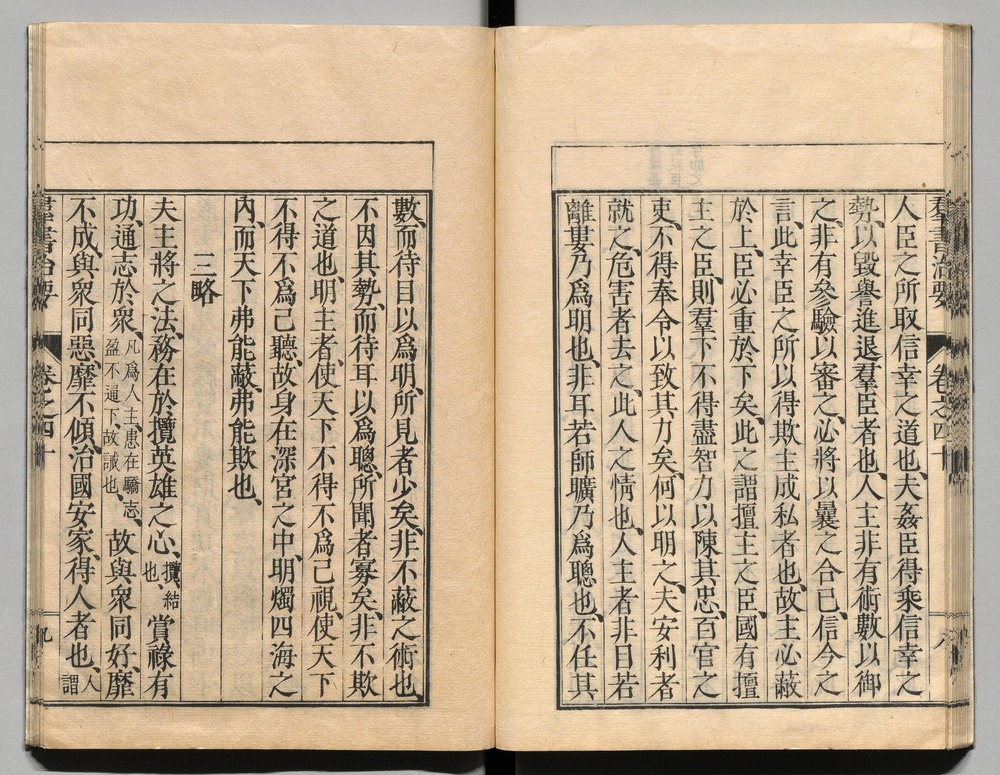 人臣之所取信幸之道也、夫姦臣得乘信幸之
勢、以毀譽進退羣臣者也、人主非有術數以御
之、非有參驗以審之、必將以曩之合己、信今之
言、此幸臣之所以得欺主成私者也、故主必蔽
於上、臣必重於下矣、此之謂擅主之臣、國有擅
主之臣、則羣下不得盡智力以陳其忠、百官之
吏、不得奉令以致其力矣、何以明之、夫安利者
就之、危害者去之、此人之情也、人主者、非目若
離婁乃爲明也、非耳若師曠乃爲聰也、不任其
羣書治要 卷之四十 八
數、而待目以爲明、所見者少矣、非不蔽之術也、
不因其勢、而待耳以爲聰、所聞者寡矣、非不欺
之道也、明主者、使天下不得不爲己視、使天下
不得不爲己聽、故身在深宮之中、明燭四海之
內、而天下弗能蔽、弗能欺也、
三略
夫主將之法、務在於攬英雄之心、攬、結也、賞祿有
功、通志於衆、凡爲人主、患在驕志盈不通下、故誡也、故與衆同好、靡
不成、與衆同惡、靡不傾、治國安家、得人者也、人謂
羣書治要 卷之四十 九